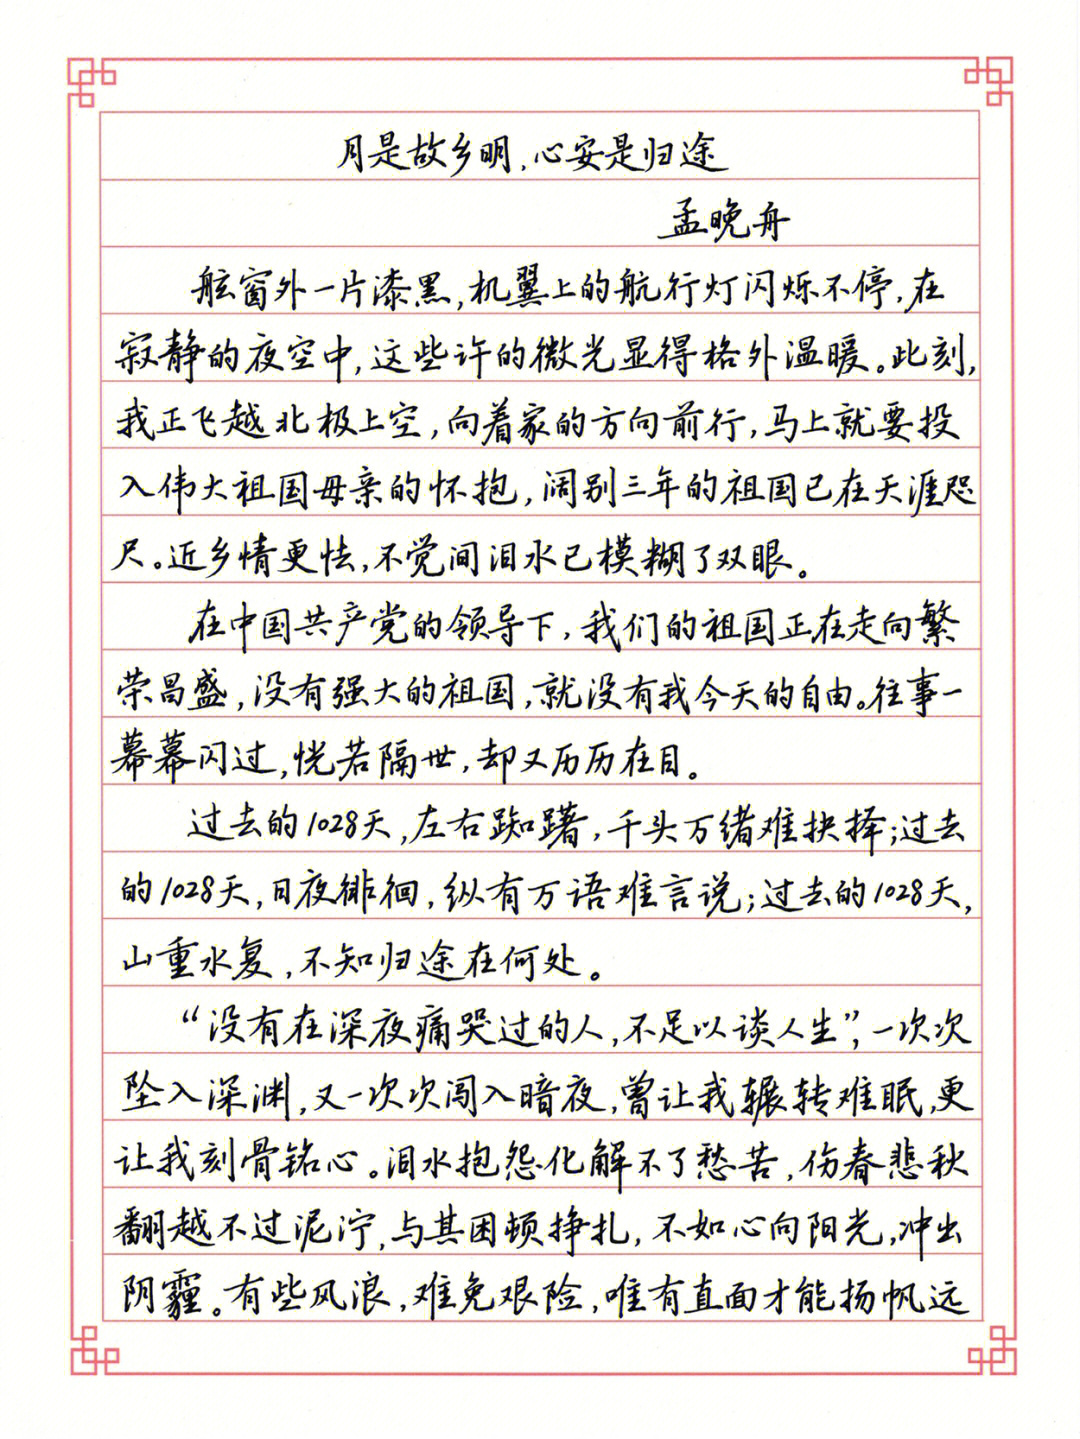 月是故乡明,心安是归途
孟晚舟
舷窗外一片漆黑,机翼上的航行灯闪烁不停,在
寂静的夜空中,这些许的微光显得格外温暖。此刻,
我正飞越北极上空,向着家的方向前行,马上就要投
入伟大祖国母亲的怀抱,阔别三年的祖国已在天涯咫
尺。近乡情更怯,不觉间泪水已模糊了双眼。
在中国共产党的领导下,我们的祖国正在走向繁
荣昌盛,没有强大的祖国,就没有我今天的自由。往事一
幕幕闪过,恍若隔世,却又历历在目。
过去的1028天,左右踟躇,千头万绪难抉择;过去
的1028天,日夜徘徊,纵有万语难言说;过去的1028天,
山重水复,不知归途在何处。
“没有在深夜痛哭过的人,不足以谈人生”,一次次
坠入深渊,又一次次闯入暗夜,曾让我辗转难眠,更
让我刻骨铭心。泪水抱怨化解不了愁苦,伤春悲秋
翻越不过泥泞,与其困顿挣扎,不如心向阳光,冲出
阴霾。有些风浪,难免艰险,唯有直面才能扬帆远